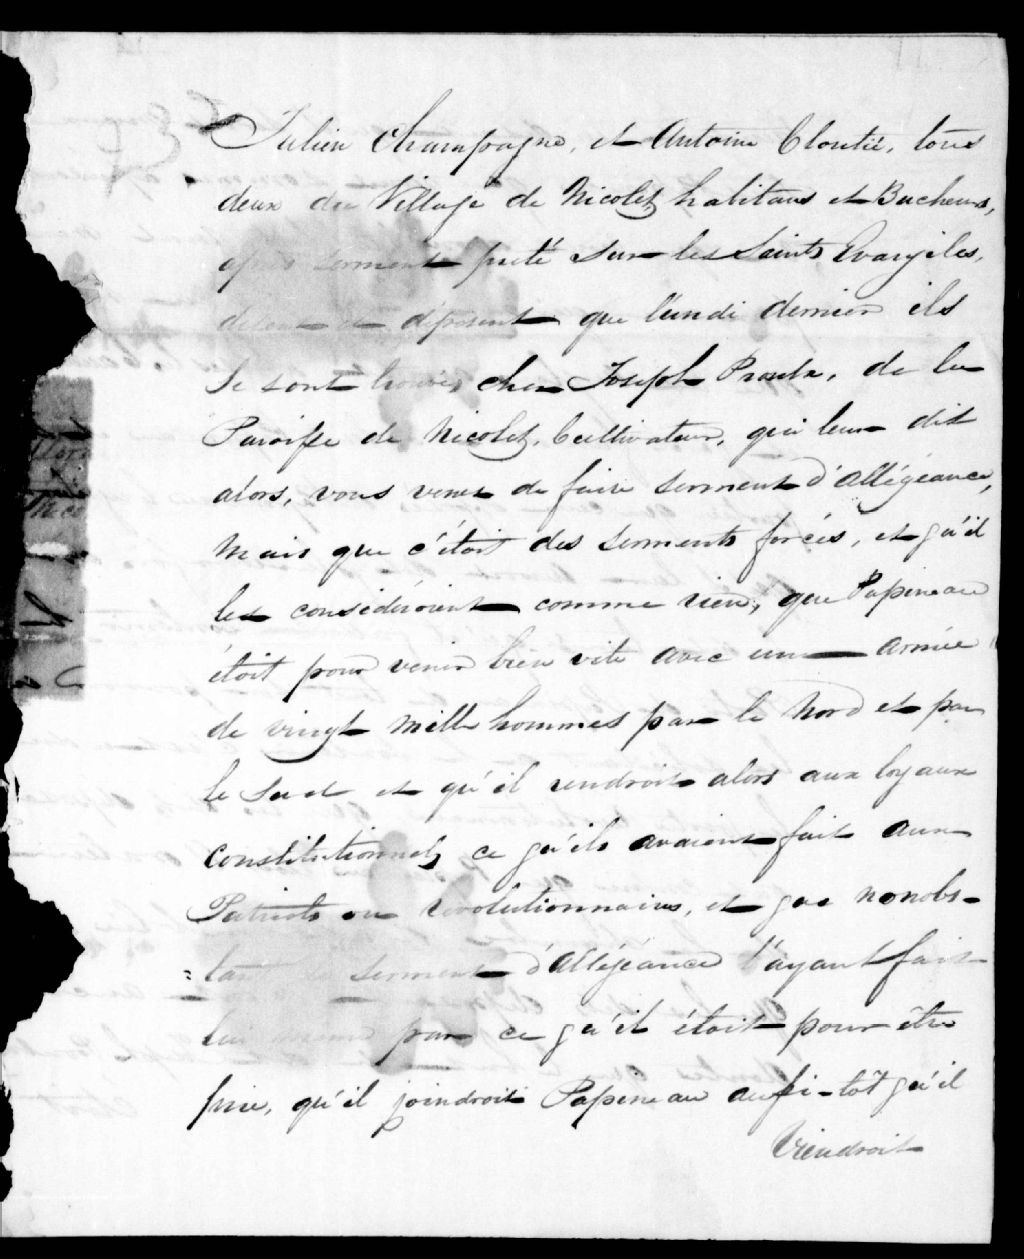 Julien Champagne, et Antoine Cloutié, tous
deux du Village de Nicolet, habitans et Bucheurs,
après serment preté sur les Saints Evangiles,
disent et déposent que lundi dernier ils
se sont trouvés chez Joseph Proulx, de la
Paroisse de Nicolet, Cultivateur, qui leur dit
alors, vous venez de faire serment d'Allégeance,
mais que c'étoit des serments forcés, et qu'il
les considéroient comme rien, que Papineau
étoit pour venir bien vite avec une armée
de vingt mille hommes par le Nord et par
le Sud et qu'il rendroit alors aux loyaux
constitutionnels ce qu'ils avaient fait aux
Patriots ou révolutionnaires, et que nonobs-
=tant le serment d'Allégeance l'ayant fait
lui même par ce qu'il étoit pour être
pris, qu'il joindroit Papineau aussi-tôt qu'il
Viendroit